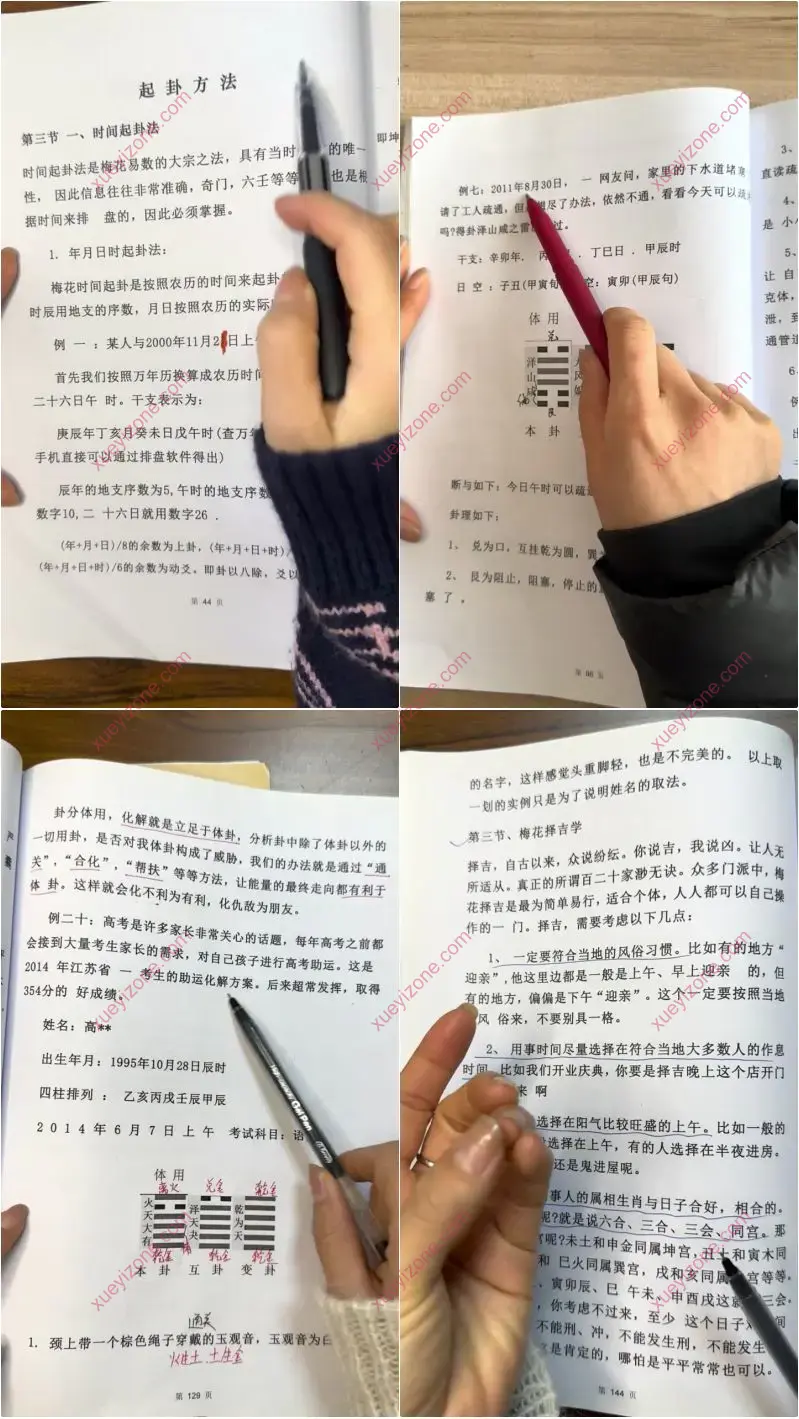 起卦方法
第三节 一、时间起卦法
时间起卦法是梅花易数的大宗之法，具有当时 的唯一
性， 因此信息往往非常准确，奇门，六壬等等 也是根
据时间来排 盘的，因此必须掌握。
1. 年月日时起卦法：
梅花时间起卦是按照农历的时间来起卦
时辰用地支的序数，月日按照农历的实际
例 一 ：某人与2000年11月2 日上
首先我们按照万年历换算成农历时间
二十六日午 时。干支表示为：
庚辰年丁亥月癸未日戊午时(查万年
手机直接可以通过排盘软件得出)
辰年的地支序数为5,午时的地支序数
数字10,二 十六日就用数字26 .
(年+月+日)/8的余数为上卦，(年+月+日+时)/
(年+月+日+时)/6的余数为动爻。即卦以八除，爻以
第 44 页
即坤
例七：2011年8月30日， 一 网友问，家里的下水道堵塞
请了工人疏通，但 想尽了办法，依然不通，看看今天可以疏
吗?得卦泽山咸之雷 过。
干支：辛卯年． 丙 ．丁巳日 ．甲辰时
日 空 ：子丑(甲寅旬 空：寅卯(甲辰旬)
体 用
兑
泽
山
咸
艮
本 卦
断与如下：今日午时可以疏通
卦理如下：
1、 兑为口，互挂乾为圆，巽
2、 艮为阻止，阻塞，停止的
塞 了 。
3、
直读疏
4、
是 小
5、
让 自
克体，
泄，到
通管道
6、
例
卦分体用，化解就是立足于体卦，分析卦中除了体卦以外的
一切用卦，是否对我体卦构成了威胁，我们的办法就是通过“通
关”，“合化”，“帮扶”等等方法，让能量的最终走向都有利于
体 卦。这样就会化不利为有利，化仇敌为朋友。
例二十：高考是许多家长非常关心的话题，每年高考之前都
会接到大量考生家长的需求，对自己孩子进行高考助运。这是
2014 年江苏省 一 考生的助运化解方案。后来超常发挥，取得
354分的 好成绩。
姓名：高**
出生年月：1995年10月28日辰时
四柱排列 ： 乙亥丙戌壬辰甲辰
2 0 1 4 年 6 月 7 日 上 午 考试科目：语
体 用
离火 兑金 乾金
火天大有 泽天夬 乾为天
乾金 乾金 乾金
本 卦 互 卦 变 卦
通关
1. 颈上带一个棕色绳子穿戴的玉观音，玉观音为白
火生土 土生金
第 129 页
的名字，这样感觉头重脚轻，也是不完美的。 以上取
一划的实例只是为了说明姓名的取法。
第三节、梅花择吉学
择吉，自古以来，众说纷纭。你说吉，我说凶。让人无
所适从。真正的所谓百二十家渺无诀。众多门派中，梅
花择吉是最为简单易行，适合个体，人人都可以自己操
作的一 门。择吉，需要考虑以下几点：
1、 一定要符合当地的风俗习惯。比如有的地方“
迎亲”，他这里边都是一般是上午、早上迎亲 的，但
有的地方，偏偏是下午“迎亲”。这个一定要按照当地
风 俗来，不要别具一格。
2、 用事时间尽量选择在符合当地大多数人的作息
时间 比如我们开业庆典，你要是择吉晚上这个店开门
来 啊
选择在阳气比较旺盛的上午。比如一般的
选择在上午，有的人选择在半夜进房。
还是鬼进屋呢。
事人的属相生肖与日子合好，相合的。
呢?就是说六合、三合、三会、同宫。那
宫呢?未土和申金同属坤宫，丑土和寅木同
和 巳火同属巽宫，戌和亥同属 宫等等。
、寅卯辰、巳 午未，申酉戌这就 三会，
，你考虑不过来，至少 这个日子 间
不能刑、冲，不能发生刑，不能发生
是肯定的，哪怕是平平常常也可以。
第 144 页
xueyizone.com